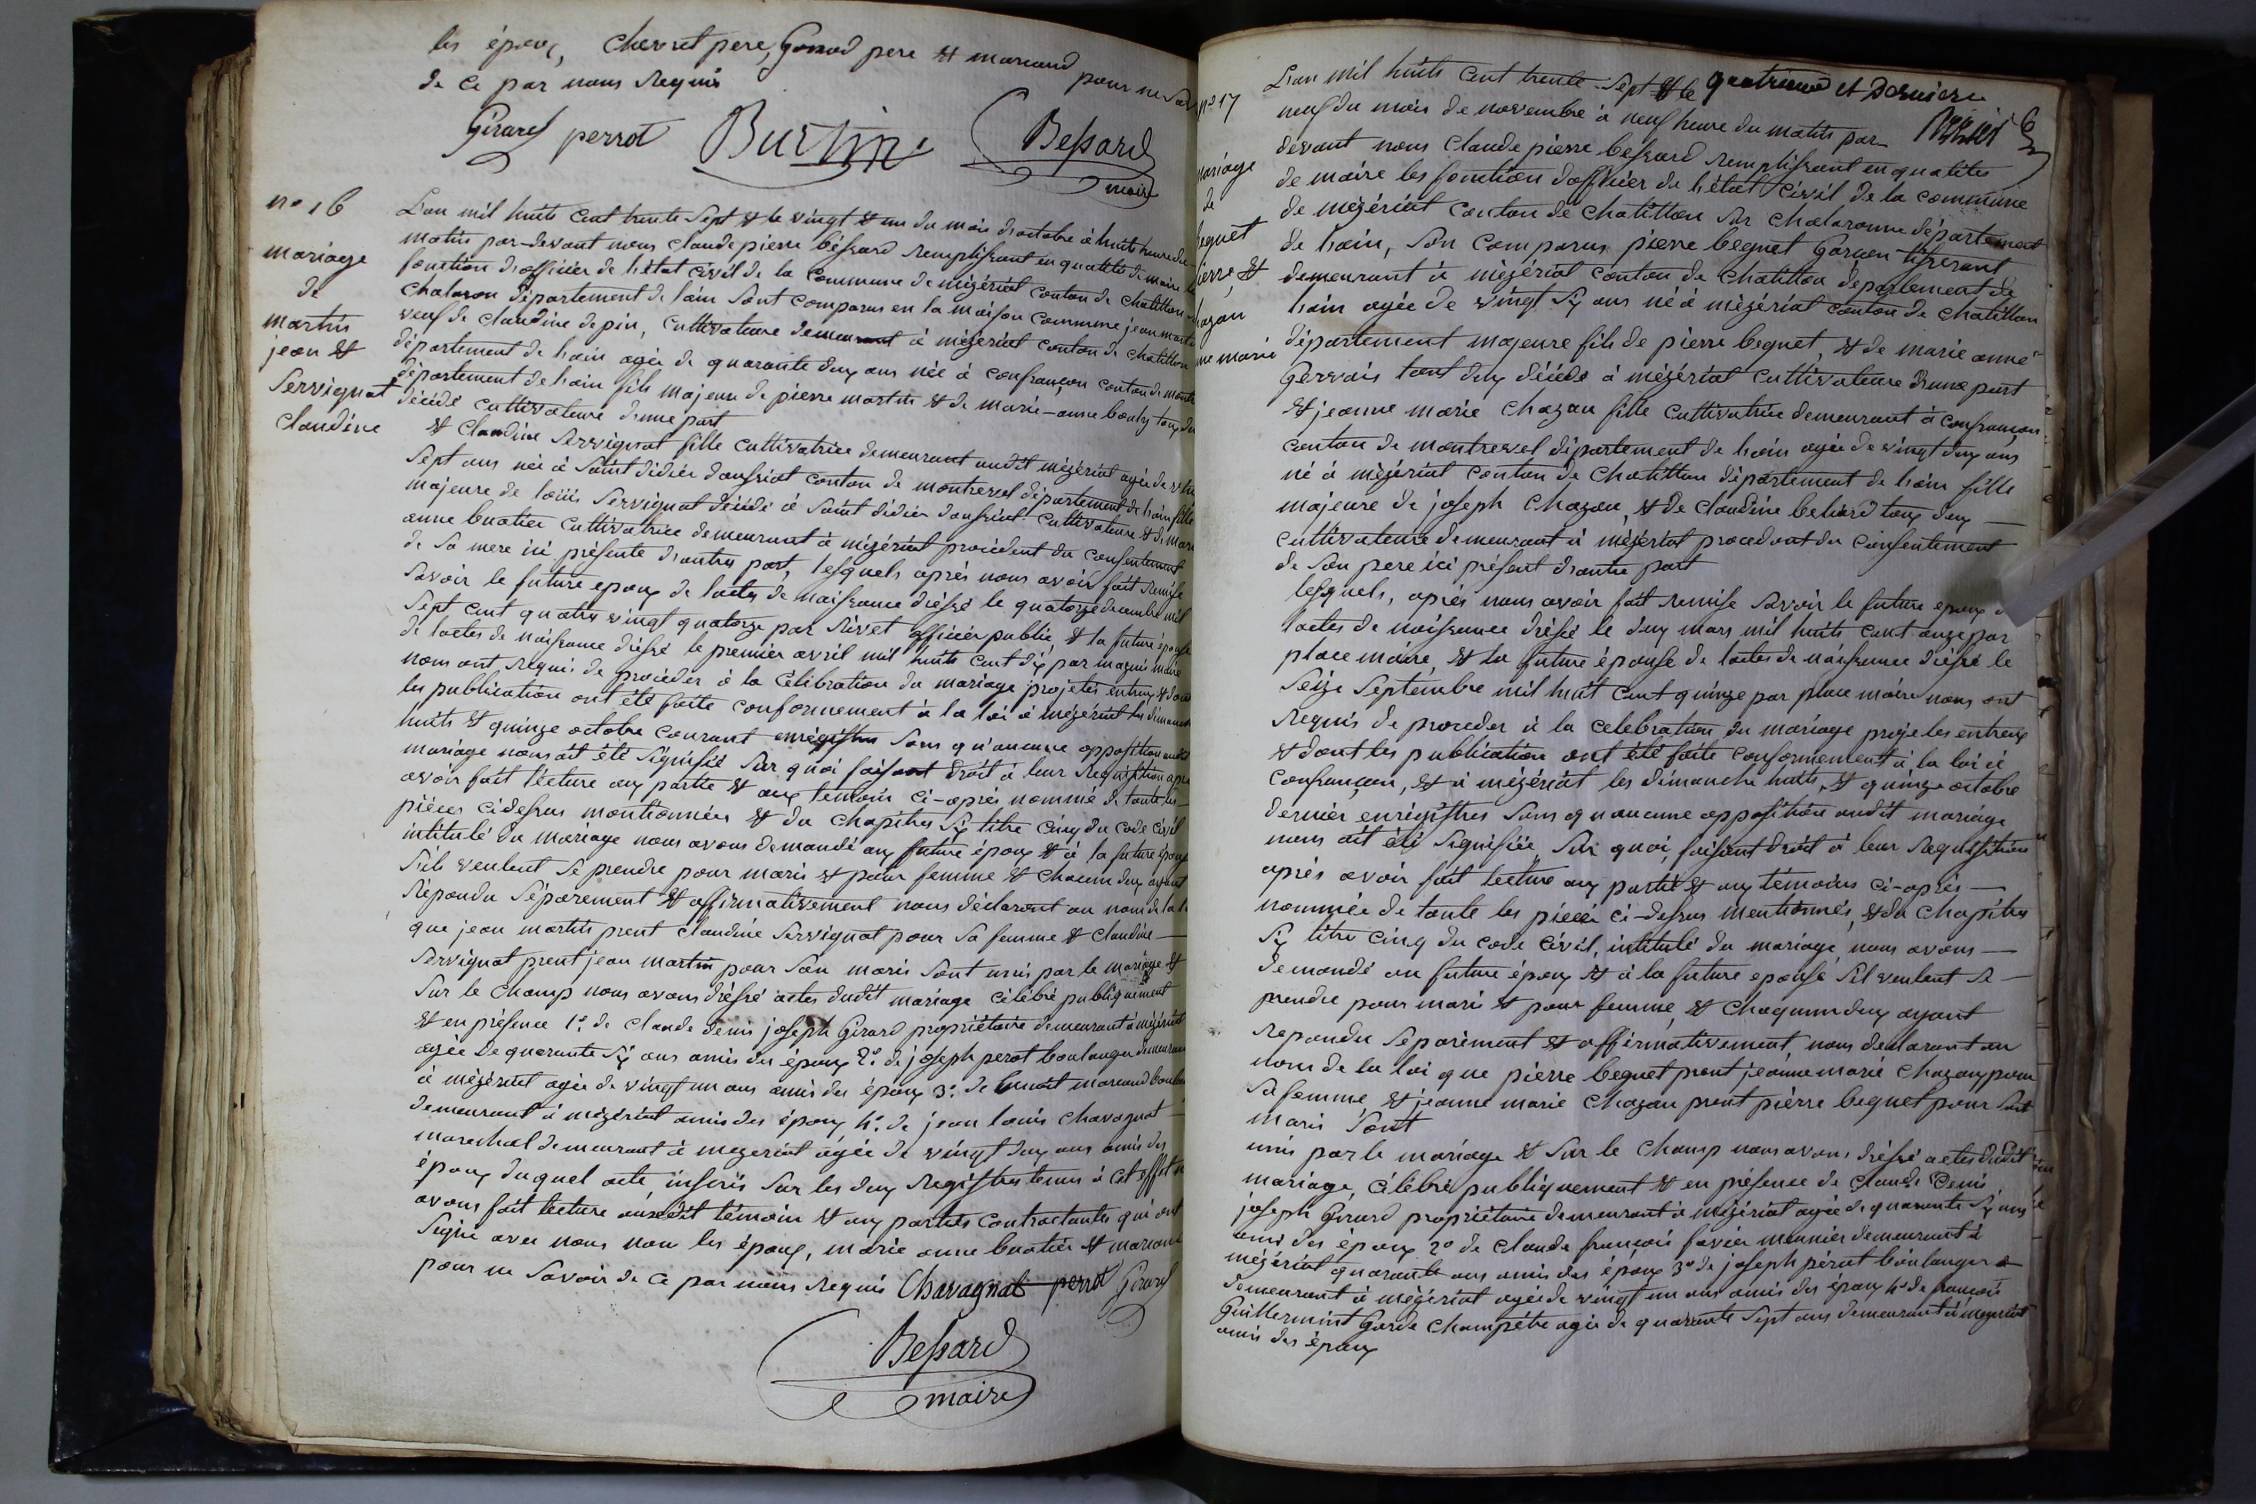 les époux, Chevret pere, Gonod pere et marcand pour ne Sav
de ce par nous Requis
Girard perrot Burtin Bessard
maire
no 16
mariage
de
martin
jean et
Servignat
Claudine
Lan mil huits cent trente Sept et le vingt et un du mois doctobre à huits heure du
matin par-devant nous Claude pierre béssard Remplissant en qualité de maire les
fonction dofficier de létat civil de la Commune de mézériat canton de Chatillon
Chalaron département de lain Sont comparus en la maison Commune jean martin
veuf de claudine depin, Cultivateure demeurant à mézériat conton de Chatillon
département de lain agée de quarante deux ans née à confrançon conton de mont
département de lain fils majeur de pierre martin et de marie-anne bouby toux deux
décédé cultivateure dunne part
et Claudine Servignat fille Cultivatrice demeurant audit mézériat agée de vingt
Sept ans née à Saint didier daussiat conton de montrevel département de lain fille
majeure de loüis Servignat décédé à Saint didier daussiat Cultivateure et de marie
anne buatier Cultivatrice demeurant à mézériat procédent du Consentement
de Sa mere ici présente dautres part, lesquels aprés nous avoir fait Remise
Savoir le future epoux de lactes de naissance dréssé le quatorze decembre mil
Sept cent quatre vingt quatorze par Rivet officier public, et la future épouse
de lactes de naissance dréssé le premier avril mil huits cent dix par maguin maire
nous ont Requis de procéder à la Célébration du mariage projetés entreux et dont
les publication ont été faite conformement à la loi à mézériat les dimanche
huits et quinze octobre Courant enrégistrés Sans qu'aucune opposition audit
mariage nous ait été Signifié Sur quoi faisant droit à leur Requisition aprés
avoir fait lecture aux partie et aux temoin ci-aprés nommé de toute les
piéces cidessus montionnées et du Chapitres Six titre cinq du Code Civil
intitulé du mariage nous avons demandé aux future époux et à la future épouse
Sils veulent Se prendre pour maris et pour femme et Chacun deux ayant
Repondu Séparement et affirmativement nous déclaront au nom de la loi
que jean martin prent claudine Servignat pour Sa femme et claudine
Servignat prent jean martin pour Son maris Sont unis par le mariage et
Sur le Champ nous avons dréssé actes dudit mariage Célébré publiquement
et en présence 1.o de Claude denis joseph Girard propriétaire demeurant à mézériat
agée de quarante Six ans amis des époux 2.o de joseph perot boulanger demeurant
à mézériat agée de vingt un ans amis des époux 3.o de benoit marcand
demeurant à mézériat amis des époux 4.o de jean louis Chavagnat
marechal demeurant à mezeriat agée de vingt deux ans amis des
époux duquel acte, inscris Sur les deux Registres tenus à cet effet
avons fait lecture auxdit témoin et aux partis contractantes qui ont
Signé avec nous non les époux, marie anne buatier et marcand
pour ne Savoir de ce par nous Requis Chavagnat perrot Girard
Bessard
maire
no 17
mariage
de
bequet
pierre, et
chazau
jeanne marie
Lan mil huits cent trente Sept et le quatrieme et derniere
neuf du mois de novembre à neuf heure du matin par
devant nous Claude pierre bessard Remplissant en qualites
de maire les fonction dofficier de létat Civil de la commune
de mézériat conton de Chatillon Sur Chalaronne département
de lain, Son Comparus pierre bequet Garçon tisserant
demeurant à mézériat conton de Chatillon département de
lain agée de vingt Six ans né à mézériat conton de Chatillon
département majeure fils de pierre bequet, et de marie anne
Gervais tout deux décédé à mézériat Cultivateure d'une part
et jeanne marie Chazau fille Cultivatrice demeurant à Confrançon
conton de montrevel département de lain agée de vingt deux ans
né à mézériat conton de Chatillon département de lain fille
majeure de joseph Chazau, et de Claudine beliard toux deux
Cultivateure demeurant à mézériat procedant du Consentement
de Son pere ici présent dautre part
lesquels, aprés nous avoir fait Remise Savoir le future epoux de
lactes de naissance dréssé le deux mars mil huits cent onze par
place maire, et la future épouse de lactes de naissance dréssé le
Seize Septembre mil huit cent quinze par place maire nous ont
Requis de proceder à la celebration du mariage projetes entreux
et dont les publication ont été faite conformement à la loi à
Confrançon, et à mézériat les dimanche huits, et quinze octobre
dernier enrégistres Sans quaucune opposition audit mariage
nous ait été Signifiée Sur quoi, faisant droit à leur Requisition
aprés avoir fait lecture aux partie et aux témoins ci-aprés
nommée de toute les piéces ci-dessus mentionnés, et du Chapitres
Six titre Cinq du code Civil, intitulé du mariage, nous avons
demandé au future époux et à la future epouse Sil veulent Se
prendre pour maris et pour femme, et Chaquun deux ayant
Repondu Séparément et affirmativement, nous déclarant au
nom de la loi que pierre bequet prent jeanne marie Chazau pour
Sa femme et jeanne marie Chazau prent pierre bequet pour Sont
maris Sont
unis par le mariage et Sur le Champ nous avons dréssé actes dudit
mariage, Célébré publiquement et en présence de Claude Denis
joseph Girard propriétaire demeurant à mézériat agée de quarante Six ans
amis des époux 2o de Claude françois favier meunier demeurant à
mézériat quarante ans amis des époux 3o de joseph pérot boulanger
demeurant à mézériat agée de vingt un ans amis des époux 4o de françois
Guillerminet Garde Champétre agée de quarante Sept ans demeurant à mezeriat
amis des époux